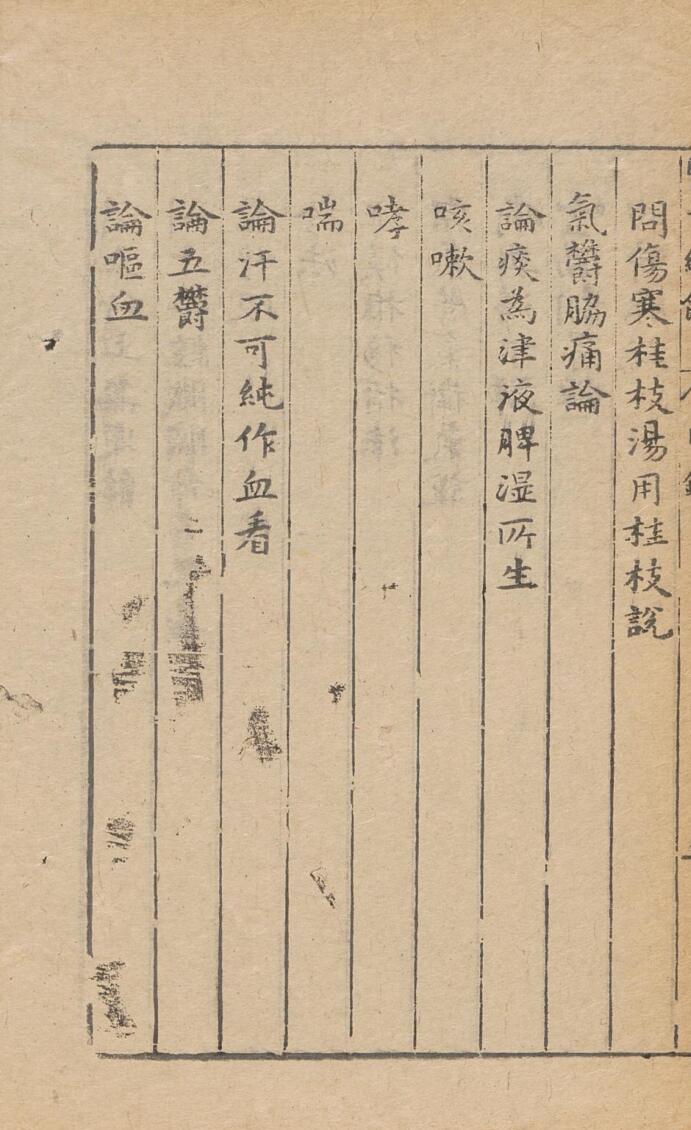 問傷寒桂枝湯用桂枝說
氣欝脇痛論
論痰為津液脾湿所生
咳嗽
哮
喘
論汗不可純作血看
論五欝
論嘔血